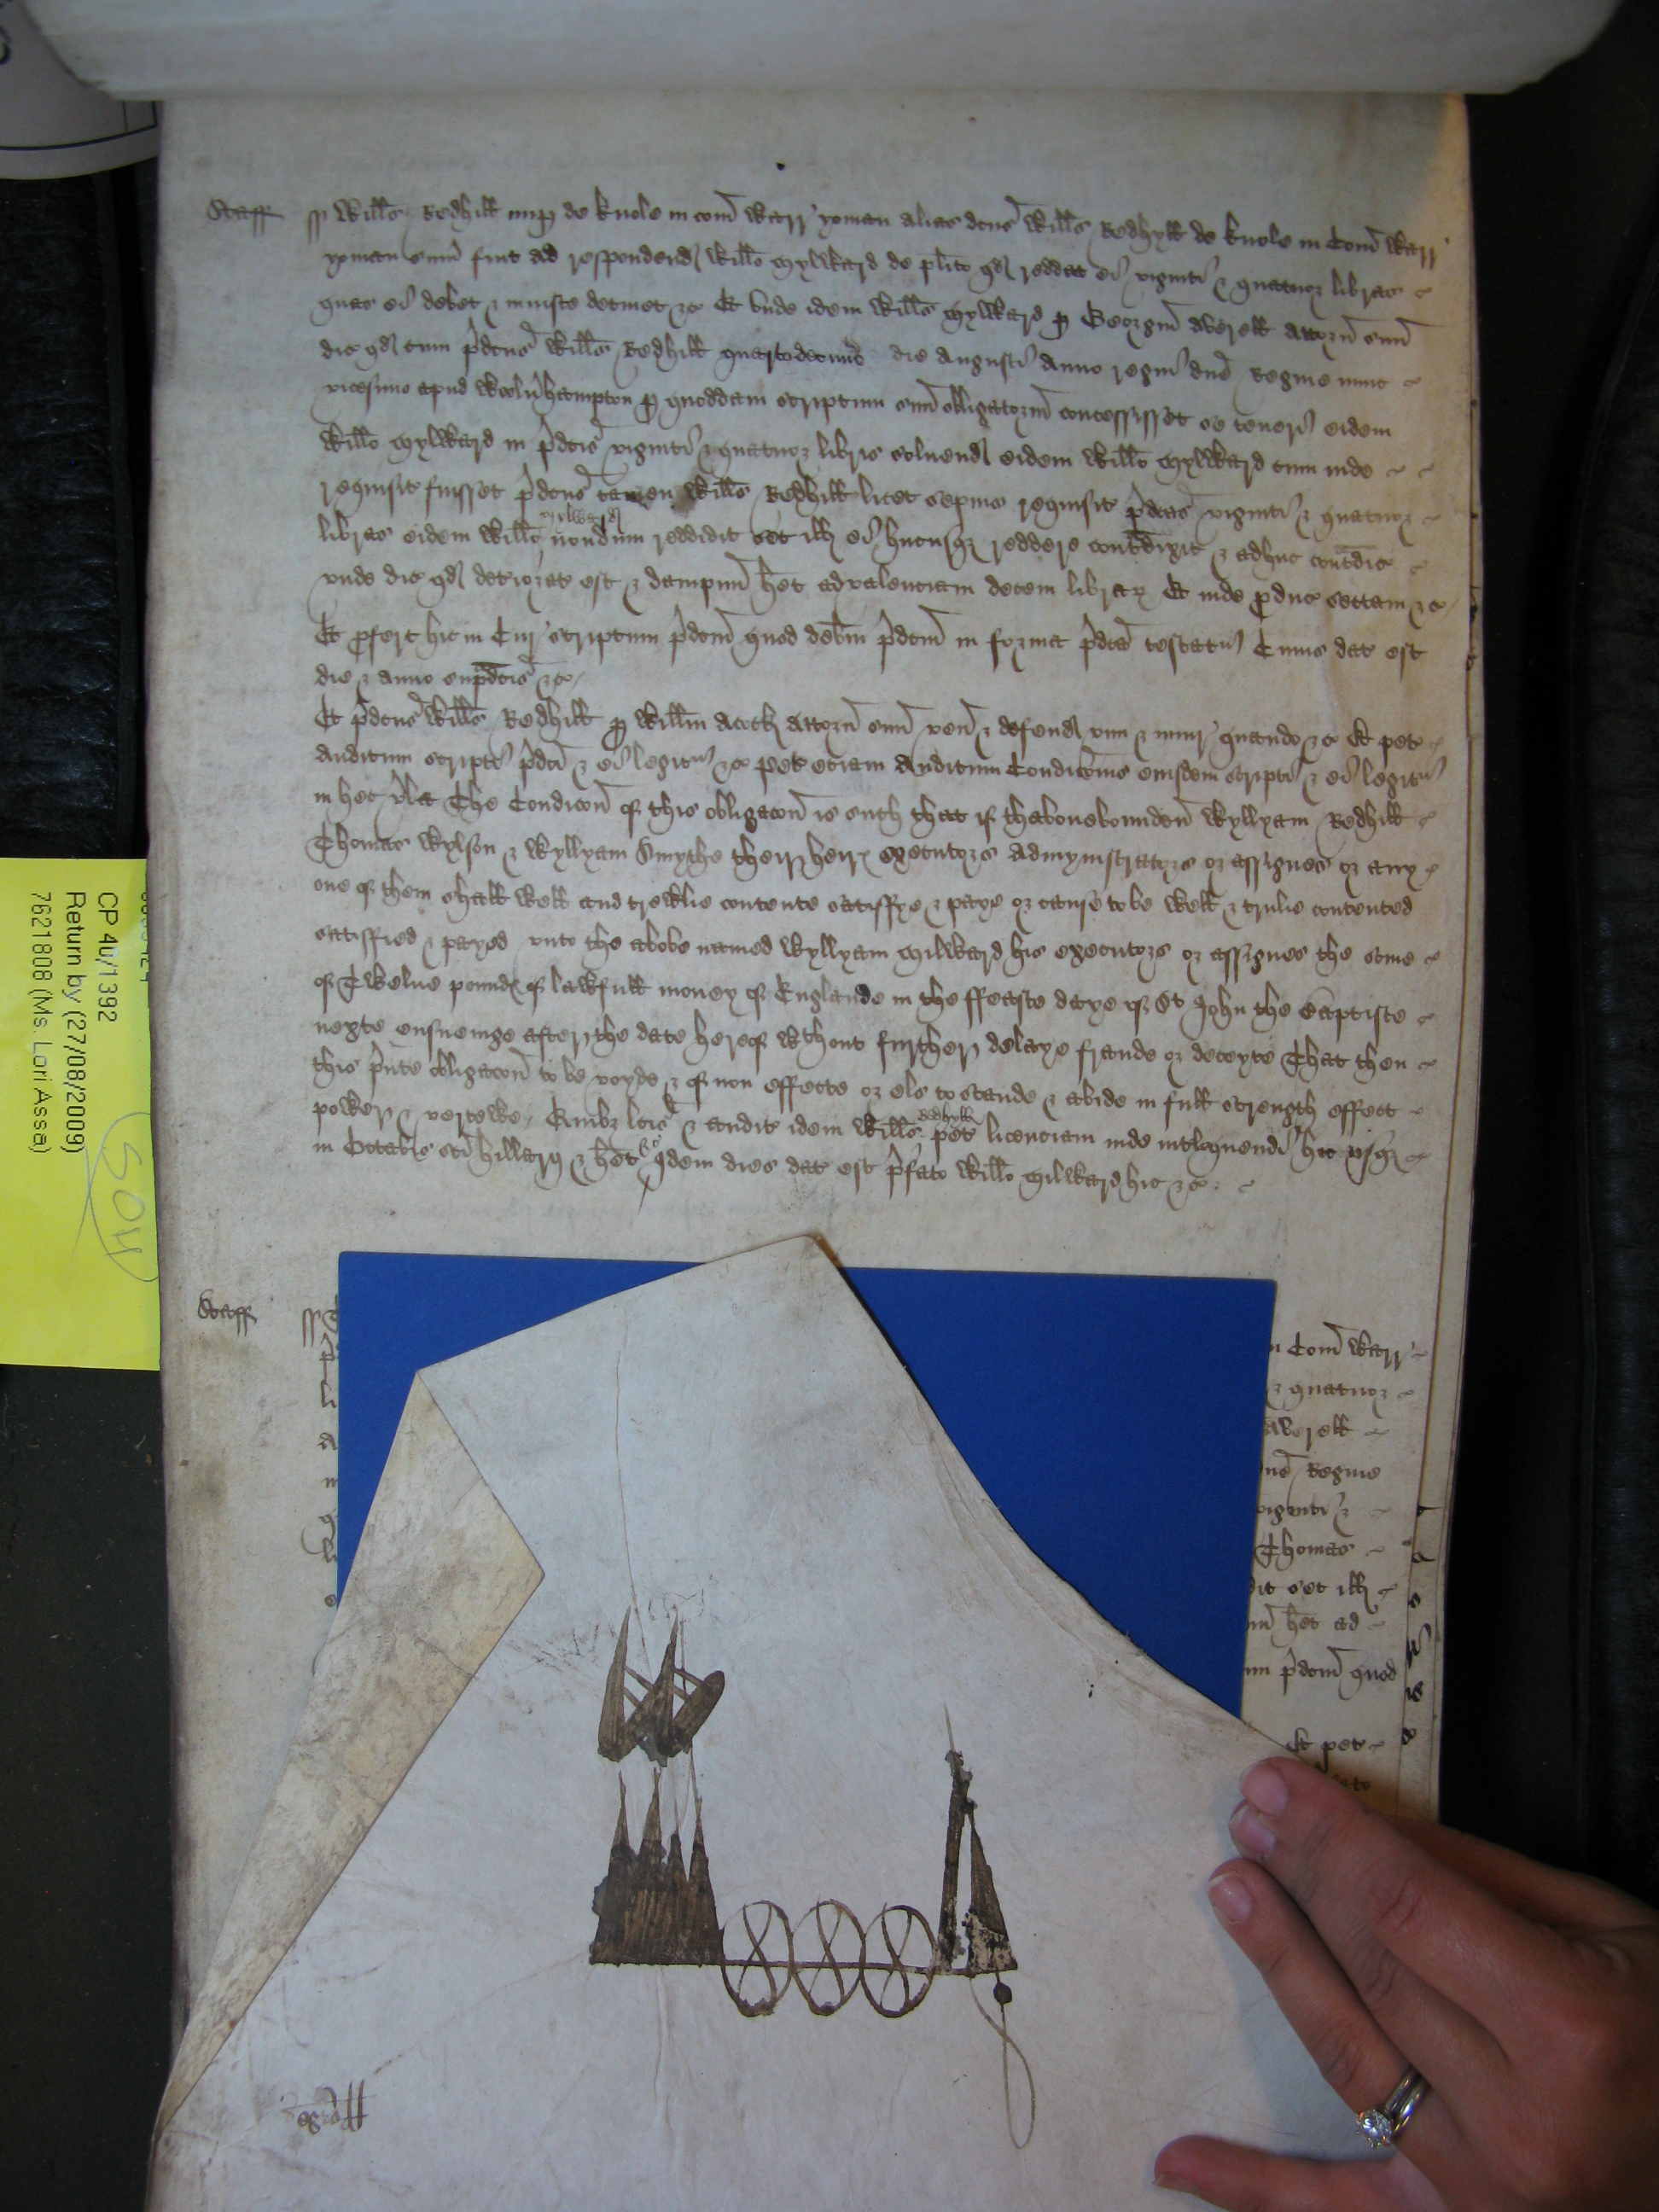 Staff ss Willms Redhill nup de Knole in com Warr yoman alias dcus Willms Redhyll de Knole in Com Warr
yoman sum fuit ad respondend Willo Mylward de plito qd reddat ei viginti & quatuor libras
quas ei debet & iniuste detinet &c Et unde idem Willms Mylward p Georgium Averell Attorn suum
dic qd cum pdcus Willms Redhill quartodecimo die Augusti anno regni dne Regine nunc
vicesimo apud Wolurhampton p quoddam scriptum suum obligatorium concessisset se teneri eidem
Willo Mylward in pdcis viginti & quatuor libris solvend eidem Willo Mylward cum inde
requisit fuisset pdcus tamen Willms Redhill licet sepius requisit pdcas viginti & quatuor
libras eidem Willo Mylward nondum reddidit set ill ei hucusqz reddere contradixit & adhuc contradic
unde dic qd deteriorat est & dampnum het ad valenciam decem librar Et inde pduc sectam &c
Et pfert hic in Cur scriptum pdcm quod debm pdcm in forma pdca testatur Cuius dat est
die & anno supdcis &c
Et pdcus Willms Redhill p Willm Acock Attorn suum ven & defend vim & iniur quando &c Et pet
Auditum scripti pdci & ei legitur &c pet etiam Auditum Condicionis eiusdem scripti & ei legitur
in hec vba The Condicon of this obligacon is such that if thabovebounden Wyllyam Redhill
Thomas Wylson & Wyllyam Smythe their heirs executors admynistrators or assignes or any
one of them shall well and trewlie contente satisffye & paye or cause to be well & trulie contented
satisfied & payed unto the above named Wyllyam Milward his executors or assignes the some
of Twelve pounds of lawfull money of Englande in the ffeaste daye of St John the Baptiste
nexte ensueinge after the date hereof wthout further delaye fraude or deceyte That then
this pnte obligacon to be voyde & of non effecte or els to stande & abide in full strength effect
power & vertewe Quibz lcis & audit idem Willms Redhyll pet licenciam inde intloquendi hic usqz
in Octabis sci Hillary & het &c idem dies dat est pfato Willo Milward hic &c
Staff ss
in Com Warr
& quatuor
Averell
dne Regine
viginti &
Thomas
set ill
het ad
pdcm quod
Et pet
CP 40/1392
Return by (27/08/2009)
7621808 (Ms. Lori Assa)